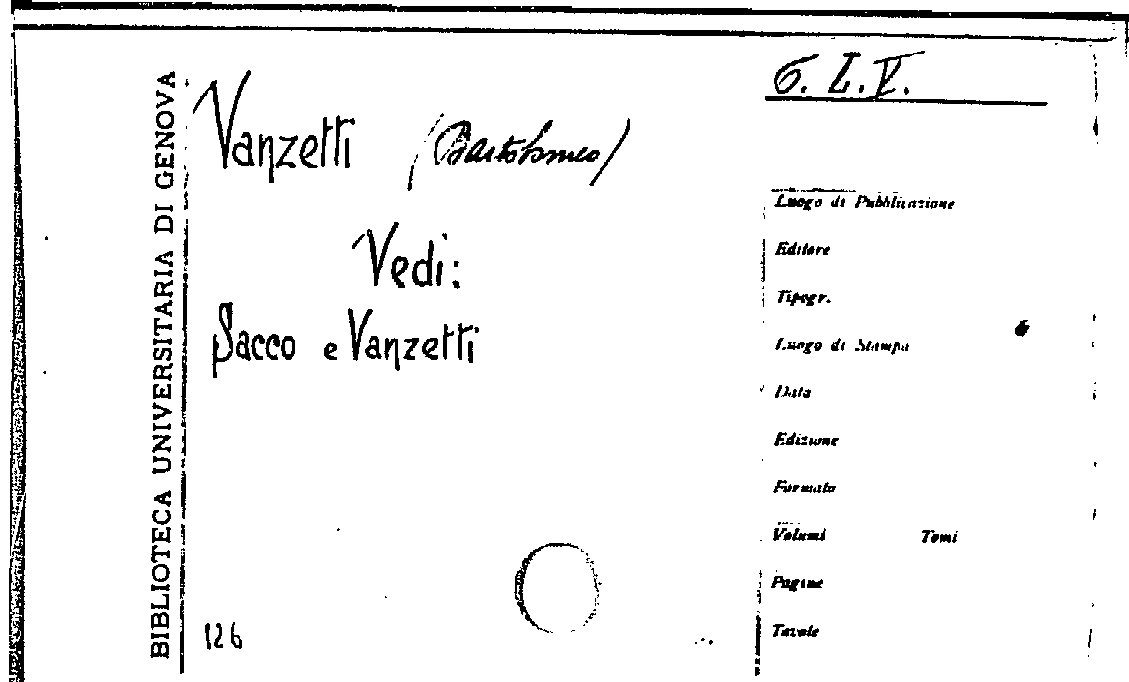 BIBLIOTECA UNIVERSITARIA DI GENOVA
G. L. V.
Vanzetti (Bartolomeo)
Vedi:
Sacco e Vanzetti
126
Luogo di Pubblicazione
Editore
Tipogr.
Luogo di Stampa
Data
Edizione
Formato
Volumi Tomi
Pagine
Tavole